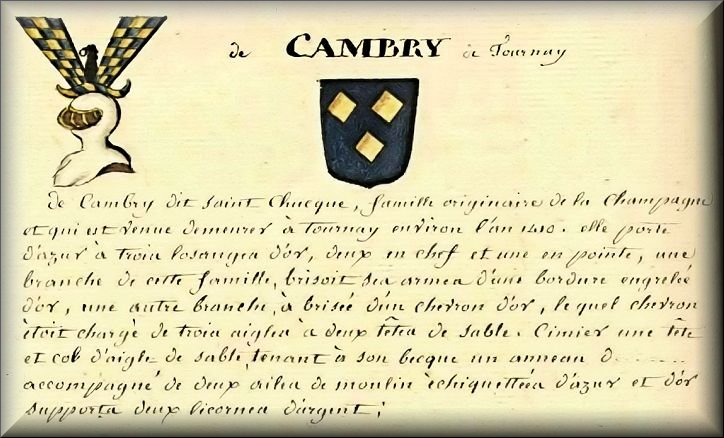 de CAMBRY de Tournay
de Cambry dit Saint Chucque, famille originaire de la Champagne
et qui est venue demeurer à Tournay environ l'an 1410. elle porte
d'azur à trois losanges d'or, deux en chef et une en pointe, une
branche de cette famille, brisoit ses armes d'une bordure engrelée
d'or, une autre branche, à brisée d'un chevron d'or, le quel chevron
ètoit chargè de trois aigles à deux têtes de sable. Cimier une tête
et col d'aigle de sable, tenant à son becque un anneau d.........
accompagné de deux ailes de moulin èchiquettées d'azur et d'or
supports deux licornes d'argent;